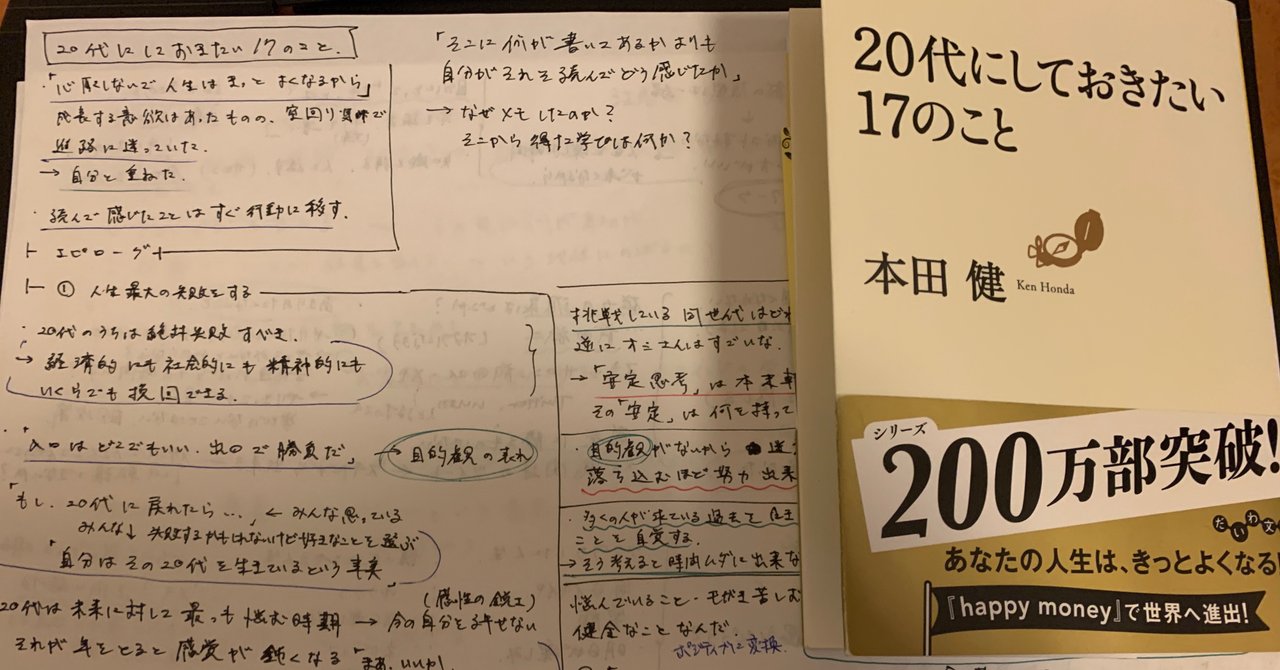 20代にしておきたい17のこと.
「心配しないで人生はきっとよくなるから」
成長する意欲はあったものの、空回り気味で
進路に迷っていた.
→ 自分と重ねた.
・読んで感じたことはすぐ行動に移す.
エピローグ
① 人生最大の失敗をする
・20代のうちは絶対失敗すべき.
→ 経済的にも社会的にも精神的にも
いくらでも挽回できる.
・「入口はどこでもいい.出口で勝負だ」→ 目的観の表れ
「もし、20代に戻れたら…」← みんな思っている
みんな↓ 失敗するかもしれないけど好きなことを選ぶ
「自分はその20代を生きているという事実」
20代は未来に対して最も悩む時期 → 今の自分を許せない
(感性の鋭さ)
それが年をとると感覚が鈍くなる「まあ、いいか.
「そこに何が書いてあるかよりも
自分がそれを読んでどう感じたか」
→ なぜメモしたのか?
そこから得た学びは何か?
挑戦している同世代はどれ
逆にオミさんはすごいな.
→「安定思考」は本末転
その「安定」は何を持って
・目的観がないから 迷う
落ち込むほど努力出来
・多くの人が来ている過去を
ことを自覚する.
→ そう考えると時間ムダに出来な
悩んでいること・もがき苦しむ
健全なことなんだ.
ポジティブに変換.
20代にしておきたい
17のこと
本田 健
Ken Honda
シリーズ
200万部突破!
だいわ文
あなたの人生は、きっとよくなる!
『happy money』で世界へ進出!